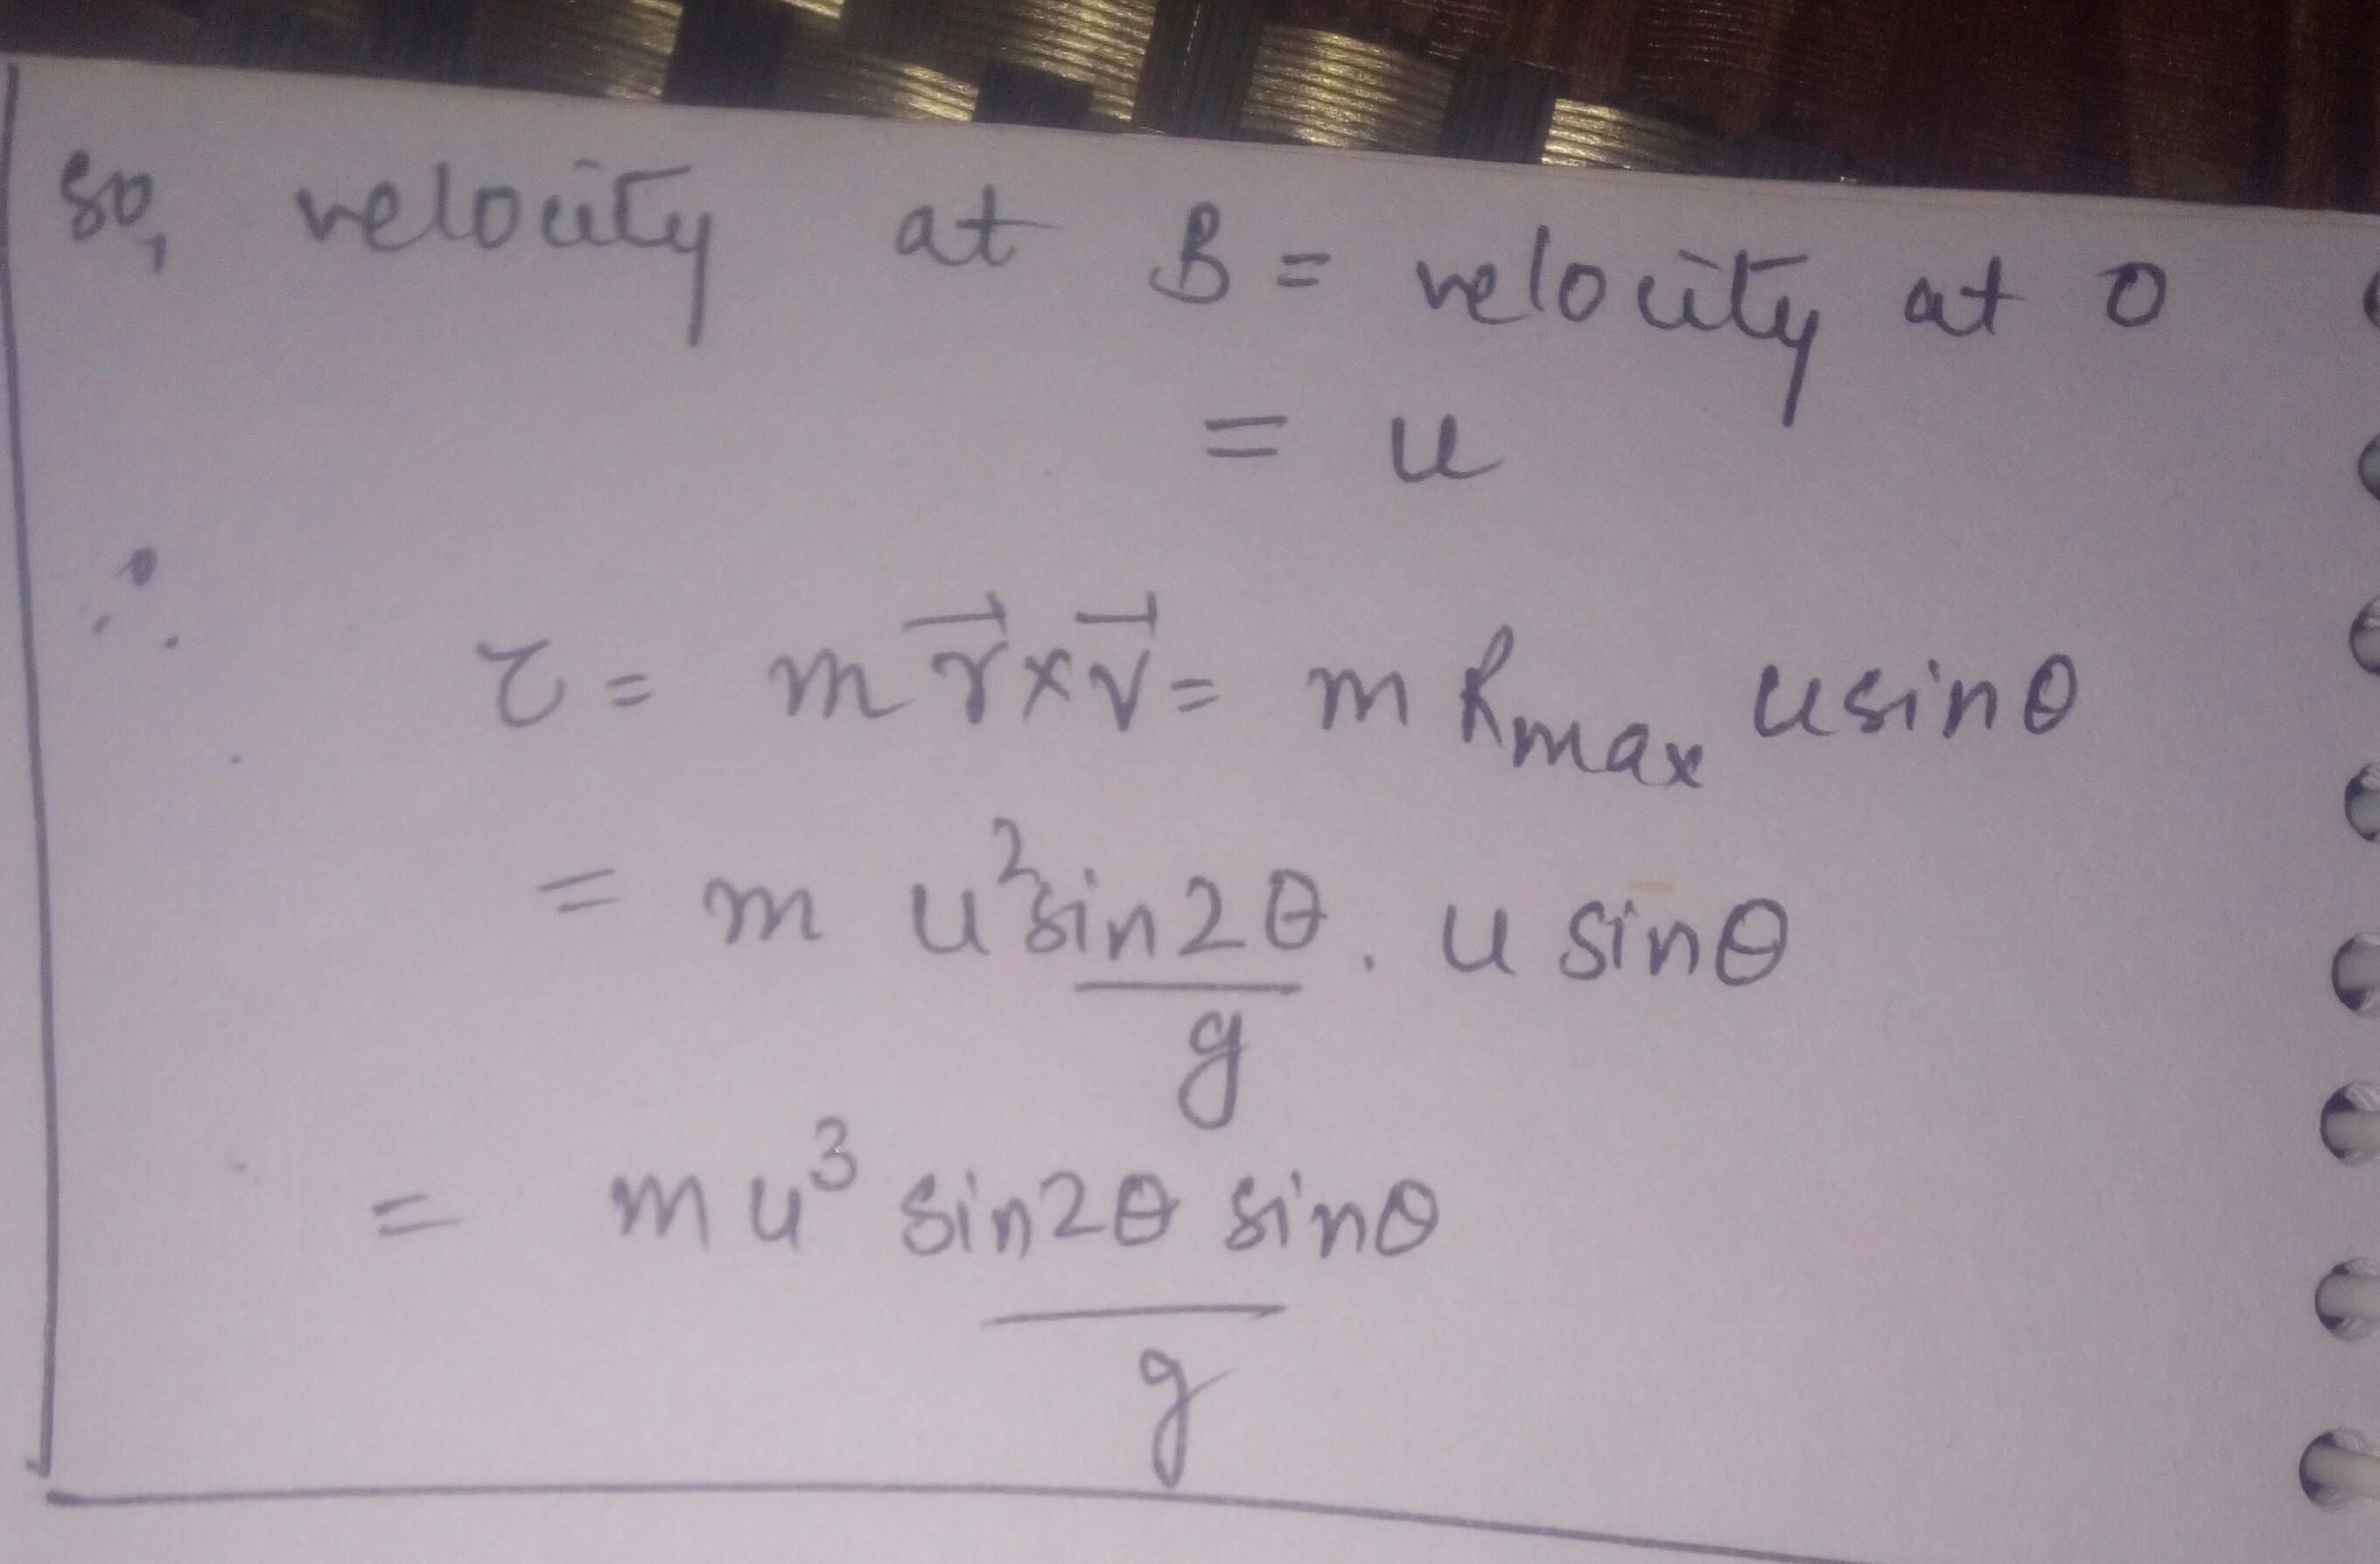 so, velocity at B = velocity at O
= u
∴ τ = m r⃗ × v⃗ = m Rmax u sinθ
= m u² sin2θ / g . u sinθ
= m u³ sin2θ sinθ / g